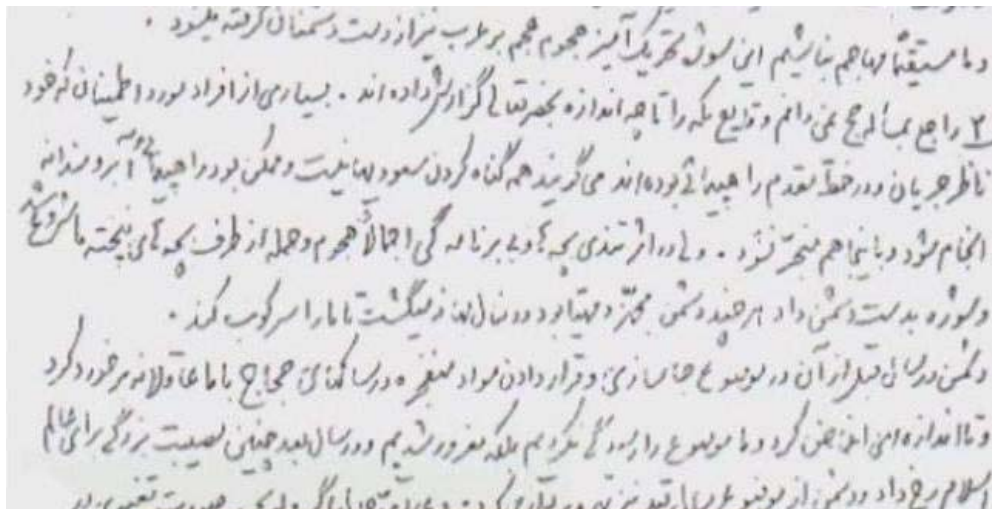 و ما مستقیماً مهاجم نباشیم این سوژه تحریک آمیز هجوم عجم بر عرب نیز از دست دشمنان گرفته میشود .
۳ راجع بمسأله حج نمی دانم وقایع مکه را تا چه اندازه بحضرتعالی گزارش داده اند . بسیاری از افراد مورد اطمینان که خود
ناظر جریان و در خط مقدم راهپیمائی بوده اند می گویند همه گناه گردن سعودیها نیست و ممکن بود راهپیمائی آبرومندانه
انجام شود و باینجا هم منجر نشود . ولی در اثر تندی بچه ها و بی برنامه گی اجمالاً هجوم و حمله از طرف بچه های پخته ما شروع شد
و سوژه بدست دشمن داد هر چند دشمن مجهز و مهیا بود و دنبال بهانه میگشت تا ما را سرکوب کند .
دشمن در سال قبل از آن در موضوع جاسازی و قرار دادن مواد منفجره در ساکهای حجاج با ما عاقلانه برخورد کرد
و تا اندازه ای اغماض کرد و ما موضوع را پیگیری نکردیم بلکه مغرور شدیم و در سال بعد چنین مصیبت بزرگی برای عالم
اسلام رخ داد و دشمن از موضوع سال قبل نیز